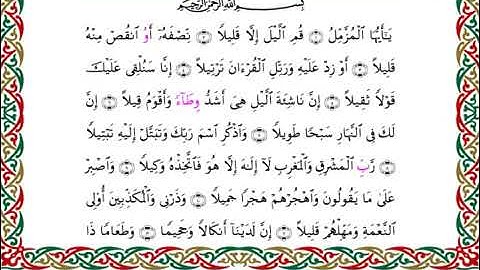 بِسۡمِ ٱللَّهِ ٱلرَّحۡمَٰنِ ٱلرَّحِيمِ
يَٰٓأَيُّهَا ٱلۡمُزَّمِّلُ ۝ قُمِ ٱلَّيۡلَ إِلَّا قَلِيلٗا ۝ نِّصۡفَهُۥٓ أَوُ ٱنقُصۡ مِنۡهُ
قَلِيلًا ۝ أَوۡ زِدۡ عَلَيۡهِ وَرَتِّلِ ٱلۡقُرۡءَانَ تَرۡتِيلًا ۝ إِنَّا سَنُلۡقِي عَلَيۡكَ
قَوۡلٗا ثَقِيلًا ۝ إِنَّ نَاشِئَةَ ٱلَّيۡلِ هِيَ أَشَدُّ وِطَآءٗ وَأَقۡوَمُ قِيلًا ۝ إِنَّ
لَكَ فِي ٱلنَّهَارِ سَبۡحٗا طَوِيلٗا ۝ وَٱذۡكُرِ ٱسۡمَ رَبِّكَ وَتَبَتَّلۡ إِلَيۡهِ تَبۡتِيلٗا
۝ رَّبِّ ٱلۡمَشۡرِقِ وَٱلۡمَغۡرِبِ لَآ إِلَٰهَ إِلَّا هُوَ فَٱتَّخِذۡهُ وَكِيلٗا ۝ وَٱصۡبِرۡ
عَلَىٰ مَا يَقُولُونَ وَٱهۡجُرۡهُمۡ هَجۡرٗا جَمِيلٗا ۝ وَذَرۡنِي وَٱلۡمُكَذِّبِينَ أُوْلِي
ٱلنَّعۡمَةِ وَمَهِّلۡهُمۡ قَلِيلًا ۝ إِنَّ لَدَيۡنَآ أَنكَالٗا وَجَحِيمٗا ۝ وَطَعَامٗا ذَا